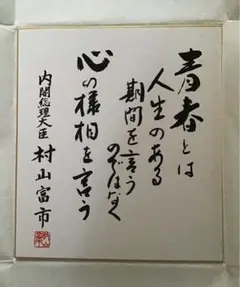 青春とは
人生のある
期間を言う
のではなく
心の様相を言う
内閣総理大臣 村山富市